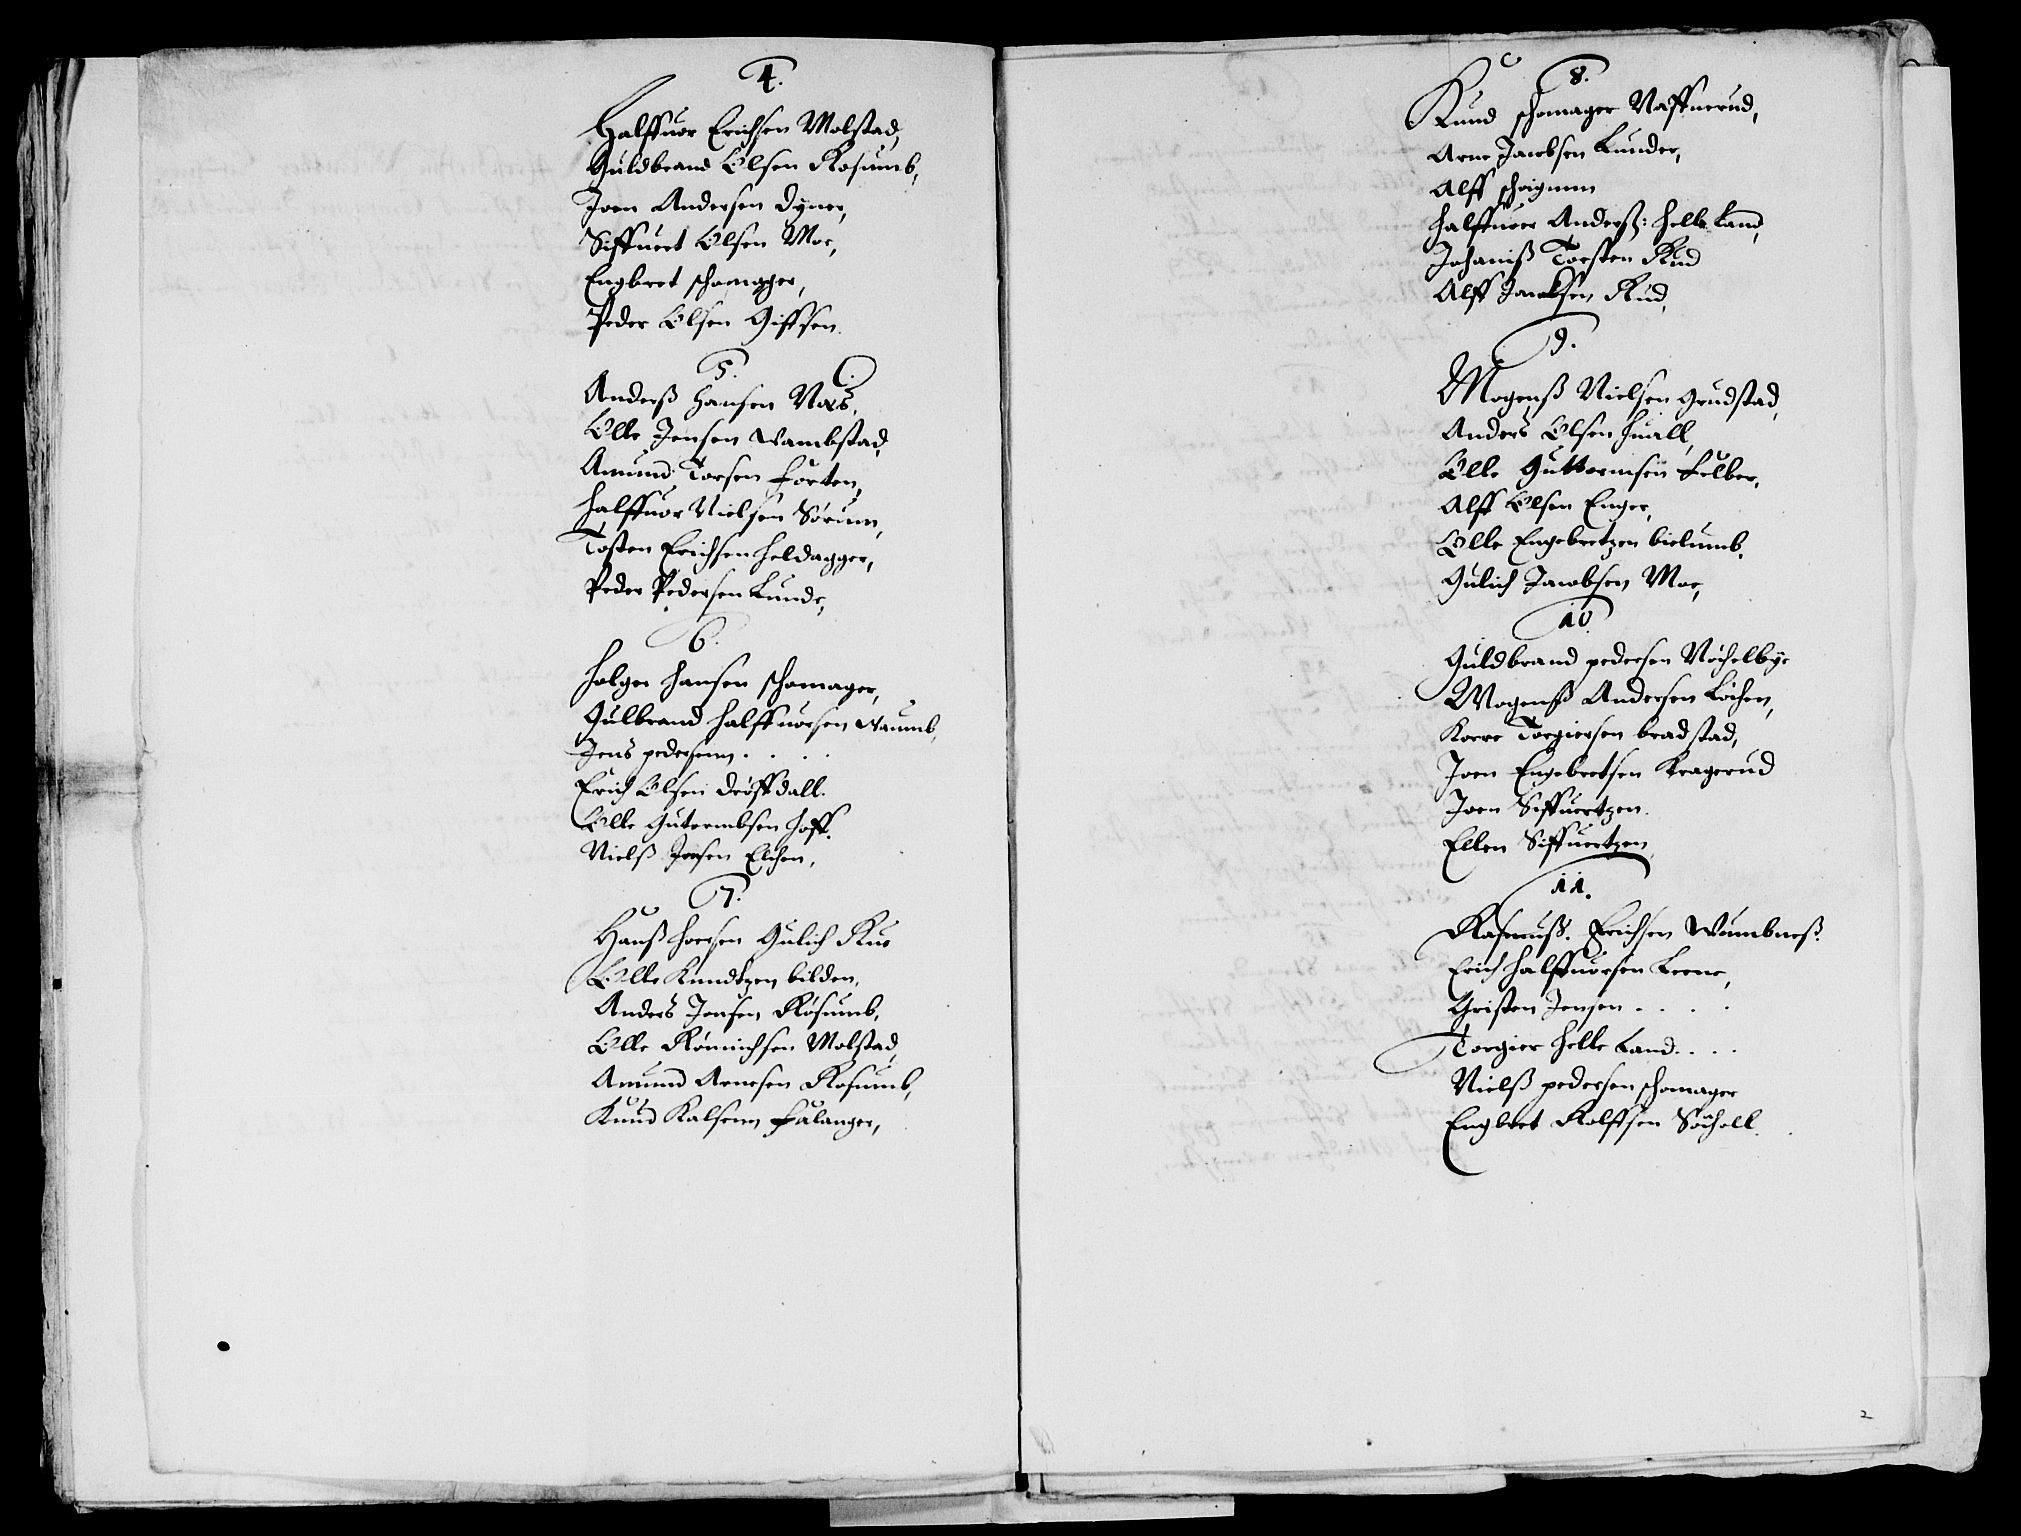 4.
Halffuor Erichsen Molstad,
Guldbrand Olsen Rosumb,
Joen Andersen Dyner,
Siffuert Olsen Moe,
Engbret schomager,
Peder Olsen Giffsen.
5.
Anderß Hansen Næs,
Olle Jensen Wambstad,
Amund Torsen Forten,
Halffuor Nielsen Sørum,
Tosten Erichsen Heldagger,
Peder Pedersen Lunde,
6.
Holger Hansen schomager,
Gulbrand Halffuorsen
Jens pedersenn . . . .
Erich Olsen Dröffdall.
Olle Gutormbsen Hoff.
Nielß Jensen Elchen,
7.
Hanß Gulich Rue
Olle Knudtzen bilden,
Anders Jensen Røsumb,
Olle Molstad,
Amund Arnesen Rosumb,
Knud Kalsenn Falanger,
8.
Knud schomager Naffnerud,
Arne Jacobsen Lunder,
Alff
Halffuor Anderß: Helle Land,
Johanniß Torsten Rud
Alff Jacobsen Rud,
9.
Mogenß Nielsen Grudstad,
Anders Olsen Huall,
Olle Guttormsen Felber,
Alff Olsen Enger,
Olle Engebretzen bielumb.
Gulich Jacobsen Moe,
10
Guldbrand pedersen Nöchelbye
Mogenß Andersen Löchen,
Korre Torgiersen bradstad,
Joen Engebretsen Kragerud
Joen Siffuertzen.
Ellen Siffuertzen
11.
Rasmuß. Erichsen Wumbneß.
Erich Halffuorsen Leene,
Gristen Jensen . . . .
Torgier Helle Land. . . .
Nielß pedersen schomager
Engbret Rolffsen Söchell.
2